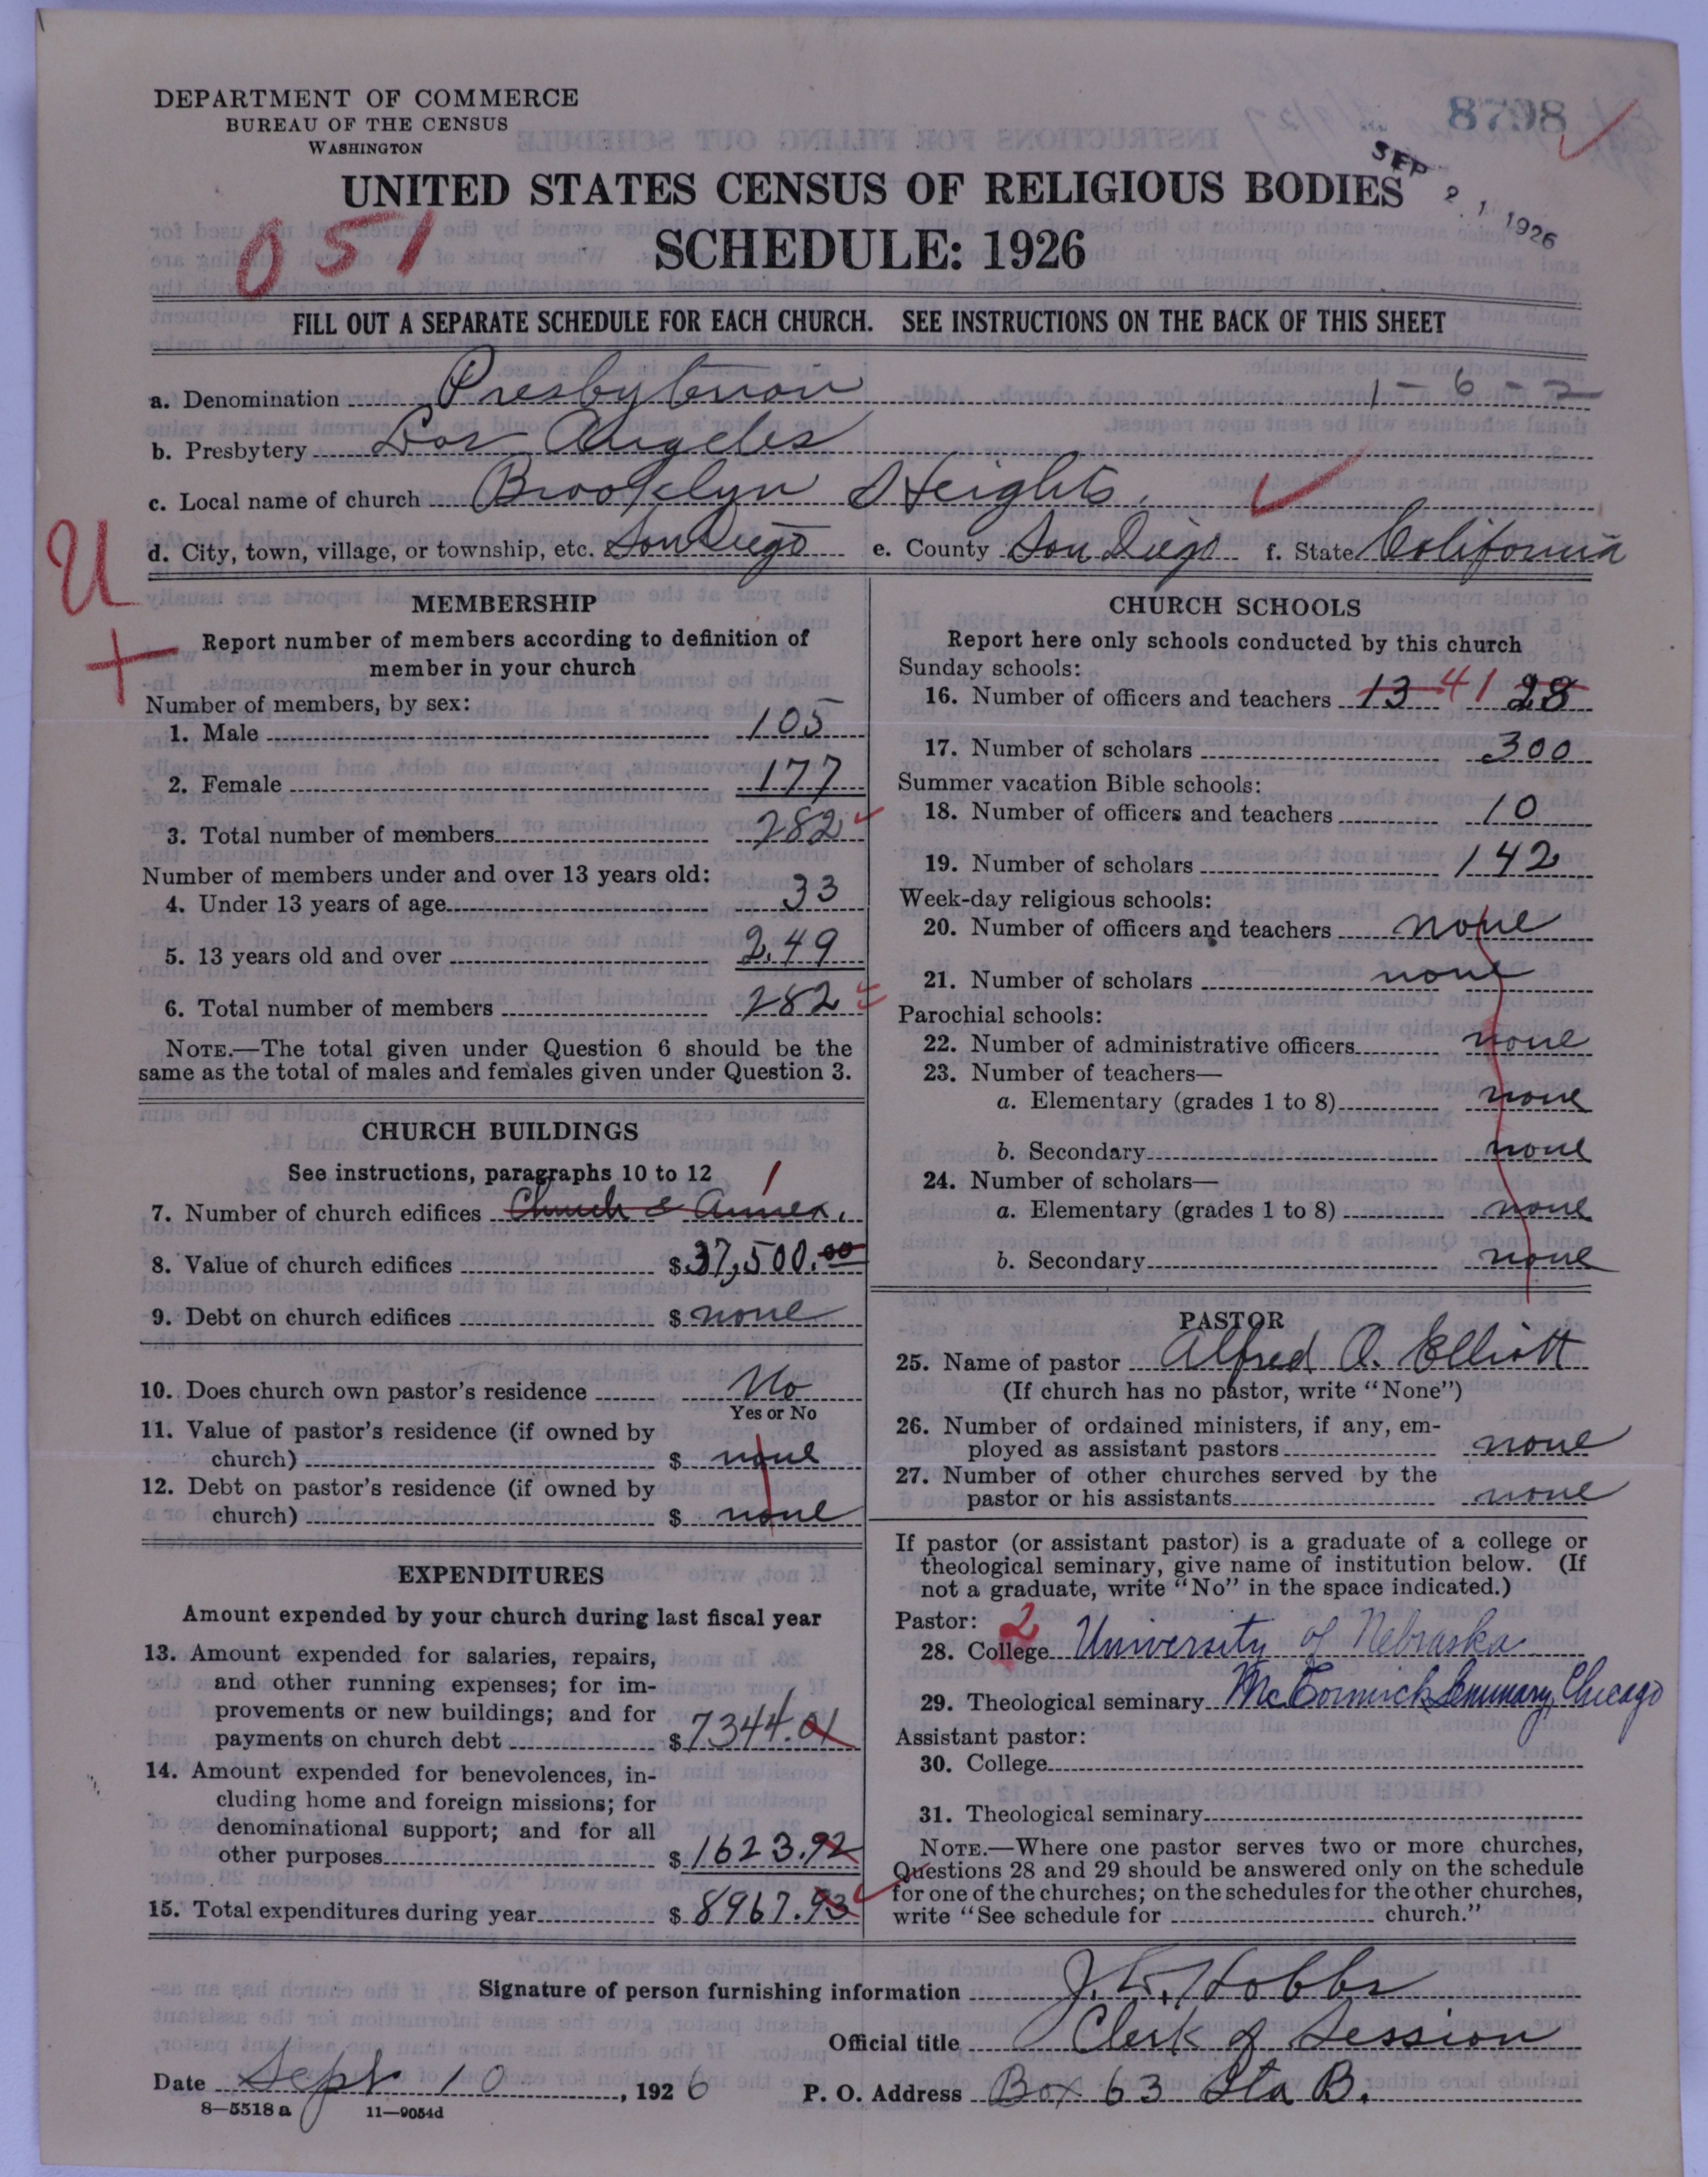 DEPARTMENT OF COMMERCE
BUREAU OF THE CENSUS
WASHINGTON
8798
SEP 21 1926
UNITED STATES CENSUS OF RELIGIOUS BODIES
051
SCHEDULE: 1926
FILL OUT A SEPARATE SCHEDULE FOR EACH CHURCH. SEE INSTRUCTIONS ON THE BACK OF THIS SHEET
a. Denomination Presbyterian 1-6-2
b. Presbytery Los Angeles
c. Local name of church Brooklyn Heights.
d. City, town, village, or township, etc. San Diego e. County San Diego f. State California
U
+
MEMBERSHIP
Report number of members according to definition of
member in your church
Number of members, by sex:
1. Male 105
2. Female 177
3. Total number of members 282
Number of members under and over 13 years old:
4. Under 13 years of age 33
5. 13 years old and over 249
6. Total number of members 282
NOTE.—The total given under Question 6 should be the
same as the total of males and females given under Question 3.
CHURCH BUILDINGS
See instructions, paragraphs 10 to 12
1
7. Number of church edifices Church & Annex.
8. Value of church edifices $37,500.00
9. Debt on church edifices $none
10. Does church own pastor's residence No
Yes or No
11. Value of pastor's residence (if owned by
church) $ none
12. Debt on pastor's residence (if owned by
church) $ none
EXPENDITURES
Amount expended by your church during last fiscal year
13. Amount expended for salaries, repairs,
and other running expenses; for im-
provements or new buildings; and for
payments on church debt $7344.01
14. Amount expended for benevolences, in-
cluding home and foreign missions; for
denominational support; and for all
other purposes $1623.92
15. Total expenditures during year $8967.93
CHURCH SCHOOLS
Report here only schools conducted by this church
Sunday schools:
16. Number of officers and teachers 13 41 28
17. Number of scholars 300
Summer vacation Bible schools:
18. Number of officers and teachers 10
19. Number of scholars 142
Week-day religious schools:
20. Number of officers and teachers none
21. Number of scholars none
Parochial schools:
22. Number of administrative officers none
23. Number of teachers—
a. Elementary (grades 1 to 8) none
b. Secondary none
24. Number of scholars—
a. Elementary (grades 1 to 8) none
b. Secondary none
PASTOR
25. Name of pastor Alfred O. Elliott
(If church has no pastor, write "None")
26. Number of ordained ministers, if any, em-
ployed as assistant pastors none
27. Number of other churches served by the
pastor or his assistants none
If pastor (or assistant pastor) is a graduate of a college or
theological seminary, give name of institution below. (If
not a graduate, write "No" in the space indicated.)
Pastor: 2
28. College University of Nebraska
29. Theological seminary McCormick Seminary, Chicago
Assistant pastor:
30. College
31. Theological seminary
NOTE.—Where one pastor serves two or more churches,
Questions 28 and 29 should be answered only on the schedule
for one of the churches; on the schedules for the other churches,
write "See schedule for church."
Signature of person furnishing information J. W. Hobbs
Official title Clerk of Session
Date Sept 10, 1926 P. O. Address Box 63 Sta B.
8—5518 a 11—9054d